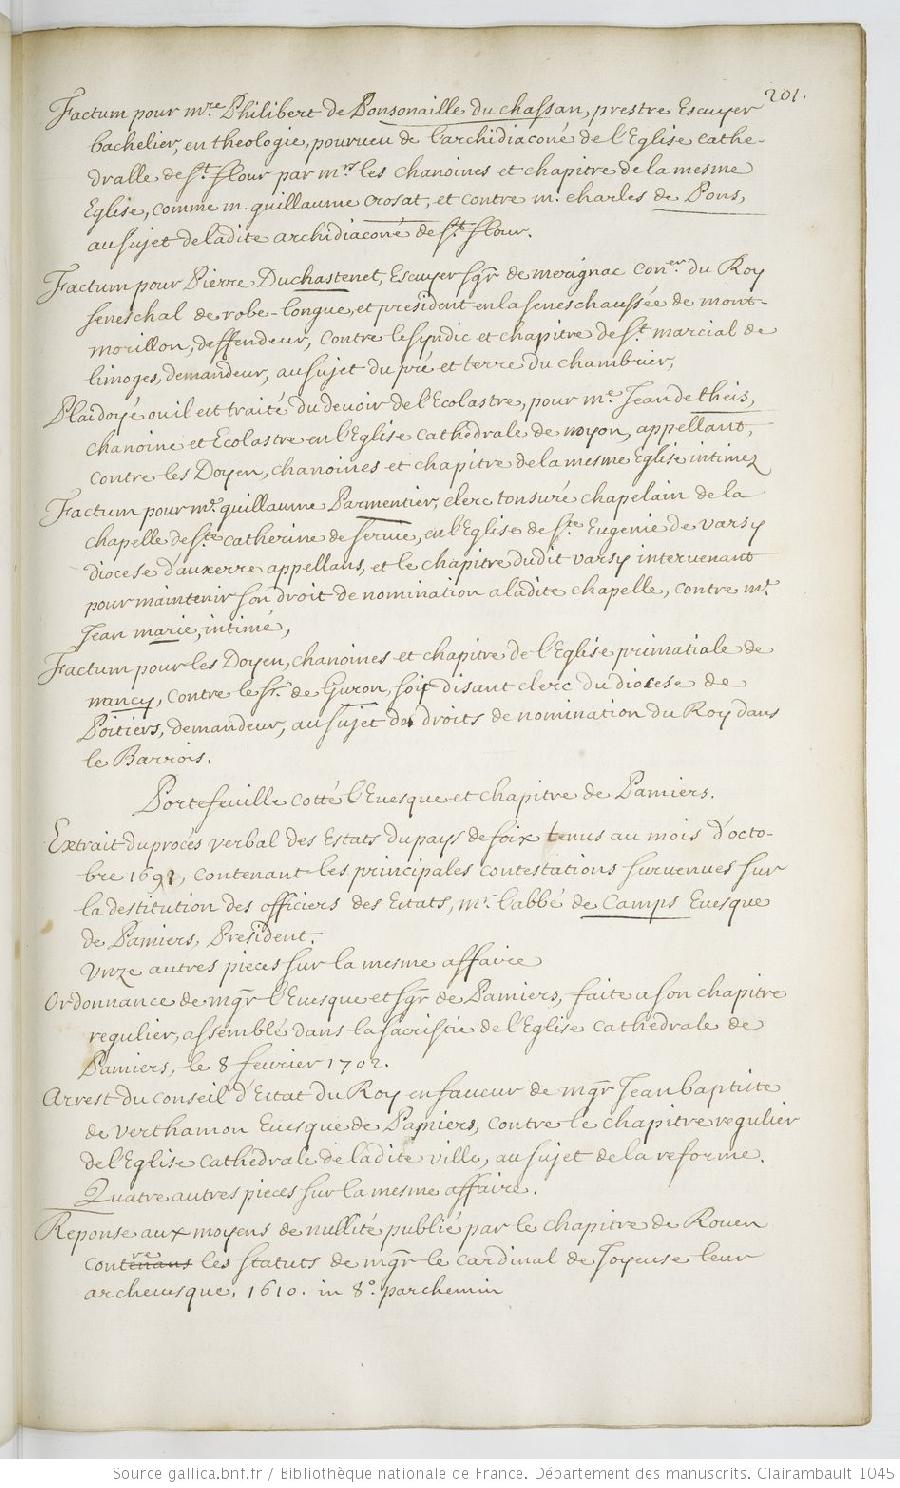 201.
Factum pour mre Philibert de Ponsonaille du chassan, prestre Escuyer
bachelier, en theologie, pourueu de l'archidiaconé de l'Eglise cathe-
dralle de St. flour par mrs les chanoines et chapitre de la mesme
Eglise, comme m. guillaume Crosat, et contre m. charles de Pons,
au sujet de ladite archidiaconé de St. flour.
Factum pour Pierre Duchastenet, Escuyer sgr de merignac Coner du Roy
seneschal de robe-longue, et president en la seneschaussée de mont-
morillon, deffendeur, contre le syndic et chapitre de St. marcial de
limoges, demandeur, au sujet du pré et terre du chambrier,
Plaidoyé ou il est traité du deuoir de l'Ecolastre, pour mre Jean de theis,
chanoine et Ecolastre en l'Eglise cathedrale de noyon, appellant,
contre les Doyen, chanoines et chapitre de la mesme Eglise intimez
Factum pour mre guillaume Parmentier, clerc tonsuré chapelain de la
chapelle de Ste catherine de serue, en l'Eglise de Ste Eugenie de varsy
diocese d'auxerre appellans, et le chapitre dudit varsy interuenant
pour maintenir son droit de nomination a ladite chapelle, contre mre
Jean marie, intimé,
Factum pour les Doyen, chanoines et chapitre de l'Eglise primatiale de
nancy, contre le sr. de Guron, soit disant clerc du diocese de
Poitiers, demandeur, au sujet des droits de nomination du Roy dans
le Barrois.
Portefeuille cotté l'Euesque et chapitre de Pamiers.
Extrait du procés verbal des Estats du pays de foix tenus au mois d'octo-
bre 1691, contenant les principales contestations suruenues sur
la destitution des officiers des Estats, mr. l'abbé de Camps Euesque
de Pamiers, President.
Unze autres pieces sur la mesme affaire
Ordonnance de mgr l'Euesque et sgr de Pamiers, faite a son chapitre
regulier, assemblé dans la sacristie de l'Eglise cathedrale de
Pamiers, le 8 feurier 1702.
Arrest du conseil d'Estat du Roy en faueur de mgr Jean baptiste
de Verthamon Euesque de Pamiers, contre le chapitre regulier
de l'Eglise cathedrale de ladite ville, au sujet de la reforme.
Quatre autres pieces sur la mesme affaire.
Reponse aux moyens de nullité publié par le chapitre de Rouen
contre les statuts de mgr le cardinal de Joyeuse leur
archeuesque. 1610. in 8º. parchemin
Source gallica.bnf.fr / Bibliothèque nationale de France. Département des manuscrits. Clairambault 1045